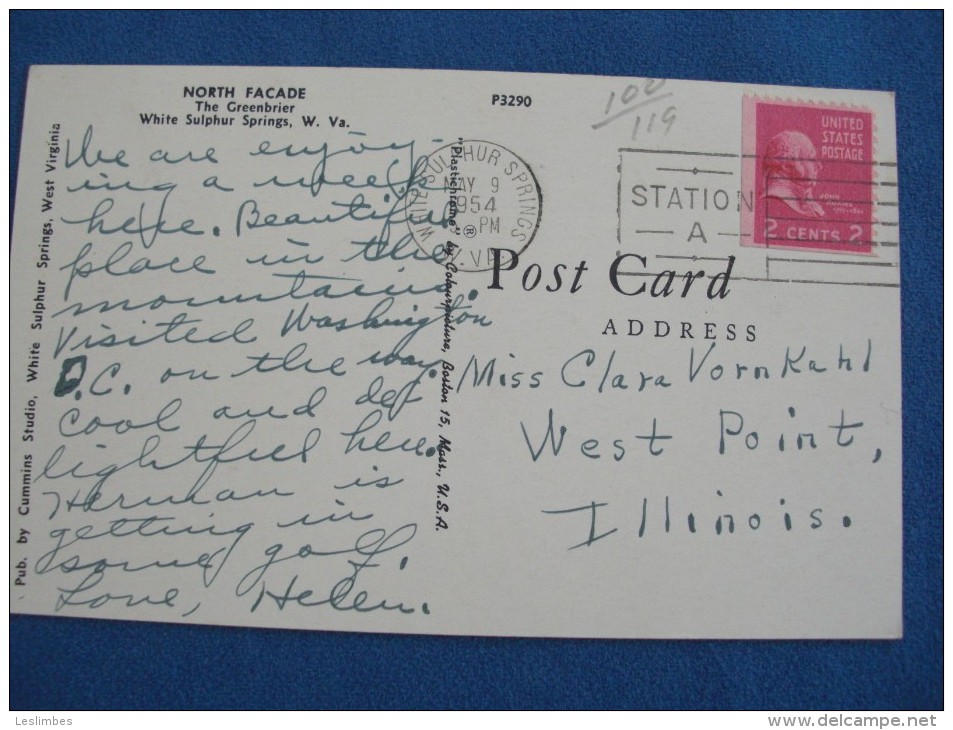 NORTH FACADE
The Greenbrier
White Sulphur Springs, W. Va.
P3290
100
119
We are enjoy-
ing a week
here. Beautiful
place in the
mountains.
Visited Washington
D.C. on the way.
Cool and de-
lightful here.
Herman is
getting in
some golf.
Love, Helen.
Pub. by Cummins Studio, White Sulphur Springs, West Virginia
"Plastichrome" ® by Colourpicture, Boston 15, Mass., U.S.A.
WHITE SULPHUR SPRINGS
MAY 9
1954
PM
W.VA.
STATION
A
UNITED
STATES
POSTAGE
JOHN
ADAMS
2 CENTS 2
Post Card
ADDRESS
Miss Clara VornKahl
West Point,
Illinois.
Leslimbes
delcampe.net